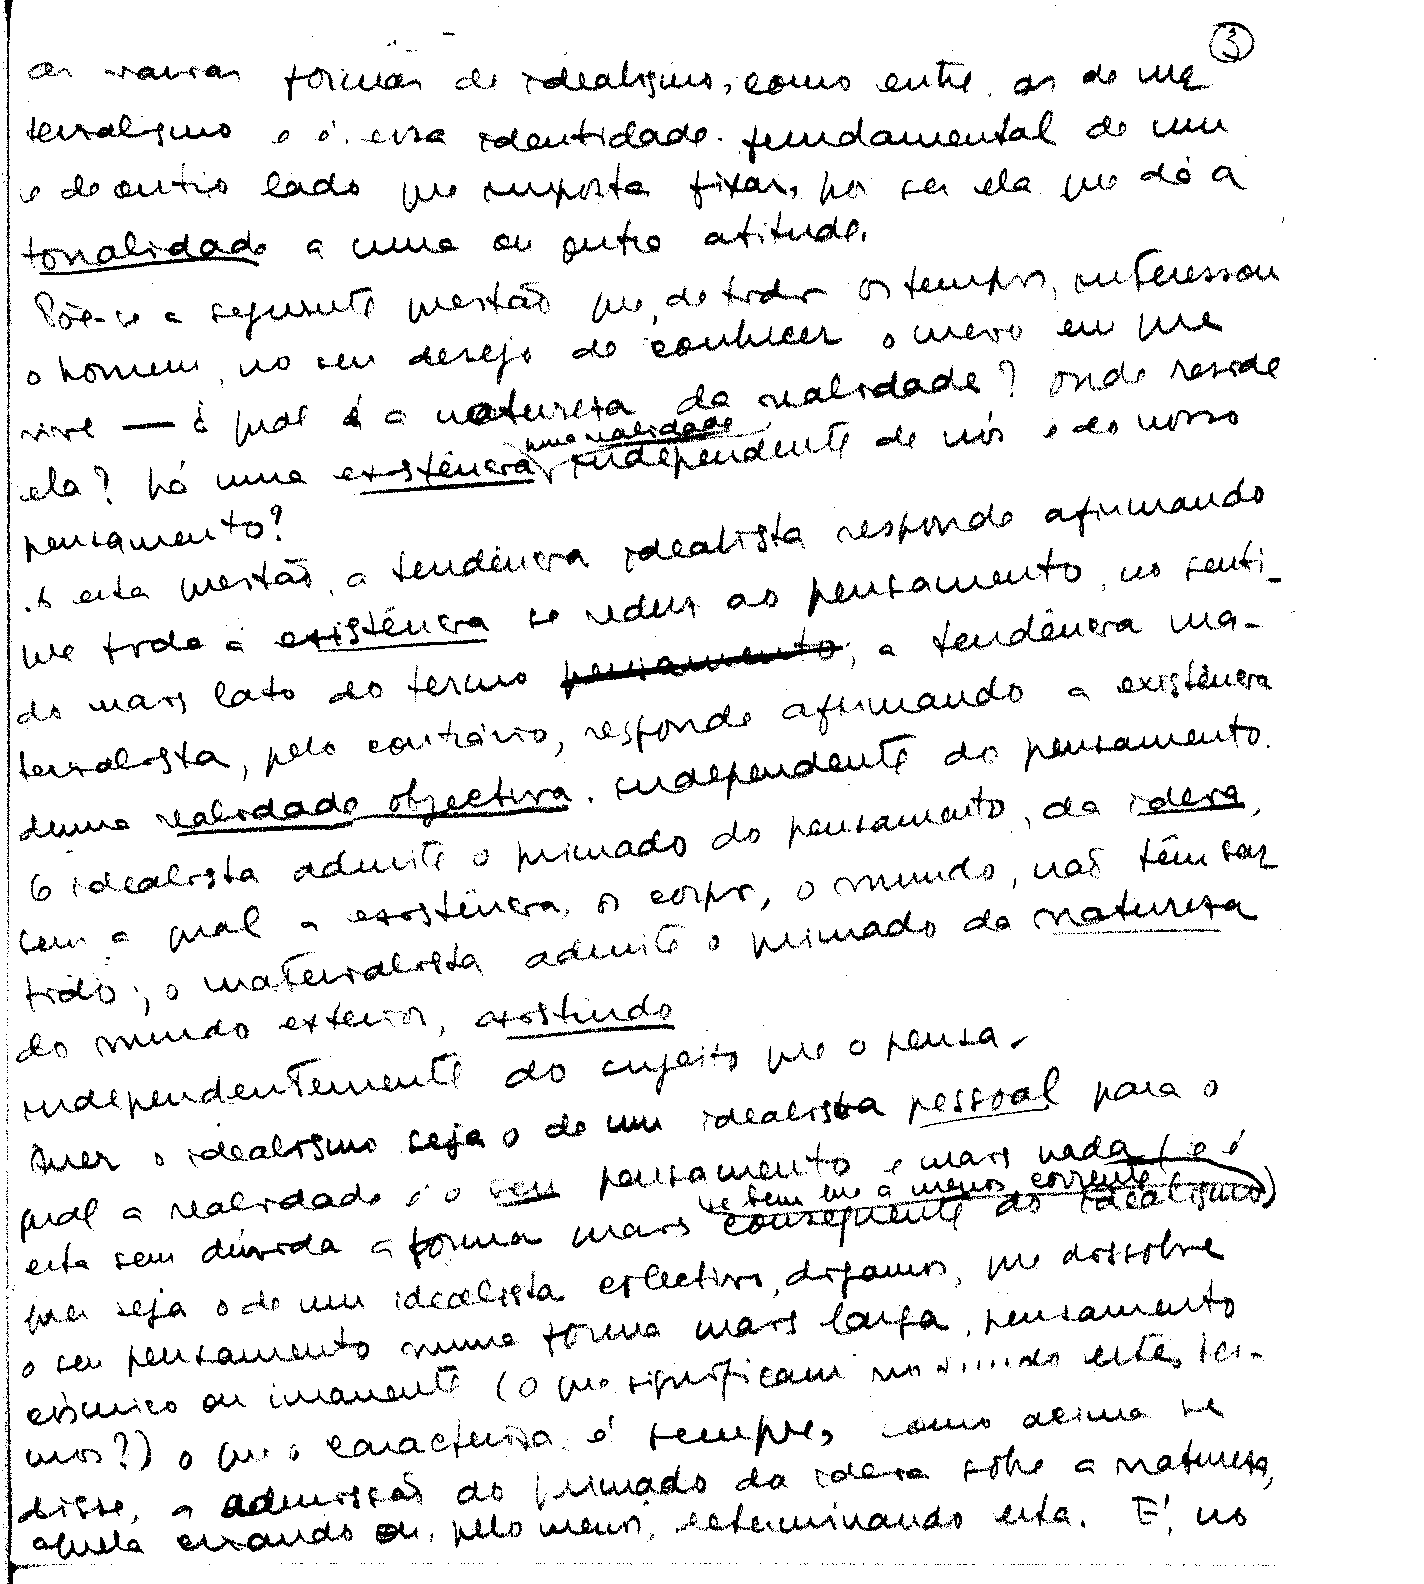 3
as várias formas de idealismo, como entre as de ma
terialismo e é essa identidade fundamental de um
e de outro lado que importa fixar, por ser ela que dá a
tonalidade a uma ou outra atitude.
Põe-se a seguinte questão que, de todos os tempos, interessou
o homem, no seu desejo de conhecer o meio em que
vive — qual é a natureza da realidade? onde reside
ela? há uma existência, uma realidade independente de nós e do nosso
pensamento?
A esta questão, a tendência idealista responde afirmando
que toda a existência se reduz ao pensamento, no senti-
do mais lato do termo pensamento; a tendência ma-
terialista, pelo contrário, responde afirmando a existência
duma realidade objectiva independente do pensamento.
O idealista admite o primado do pensamento, da ideia,
sem a qual a existência, os corpos, o mundo, não têm sen
tido; o materialista admite o primado da natureza
do mundo exterior, existindo
independentemente do sujeito que o pensa.
Quer o idealismo seja o de um idealista pessoal para o
qual a realidade é o seu pensamento e mais nada (e é
esta sem dúvida a forma mais consequente se bem que a menos corrente do idealismo)
quer seja o de um idealista colectivo, digamos, que dissolve
o seu pensamento numa forma mais larga, pensamento
cósmico ou imanente (o que significam no estes ter-
mos?) o que o caracteriza é sempre, como acima se
disse, a admissão do primado da ideia sobre a natureza,
aquela criando ou, pelo menos, determinando esta. É, no